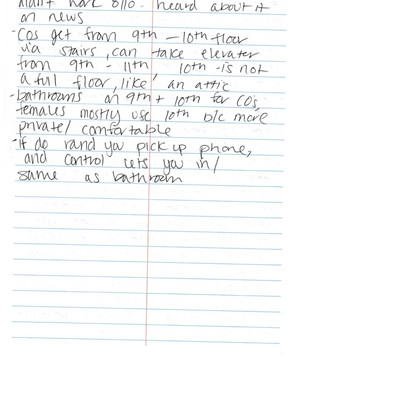 didn't work 8/10. heard about it
on news
- COs get from 9th - 10th floor
via stairs, can take elevator
from 9th - 11th 10th - is not
a full floor, like an attic
- bathrooms on 9th + 10th for CO's,
females mostly use 10th b/c more
private/comfortable
- If do rand you pick up phone,
and control lets you in/
same as bathroom